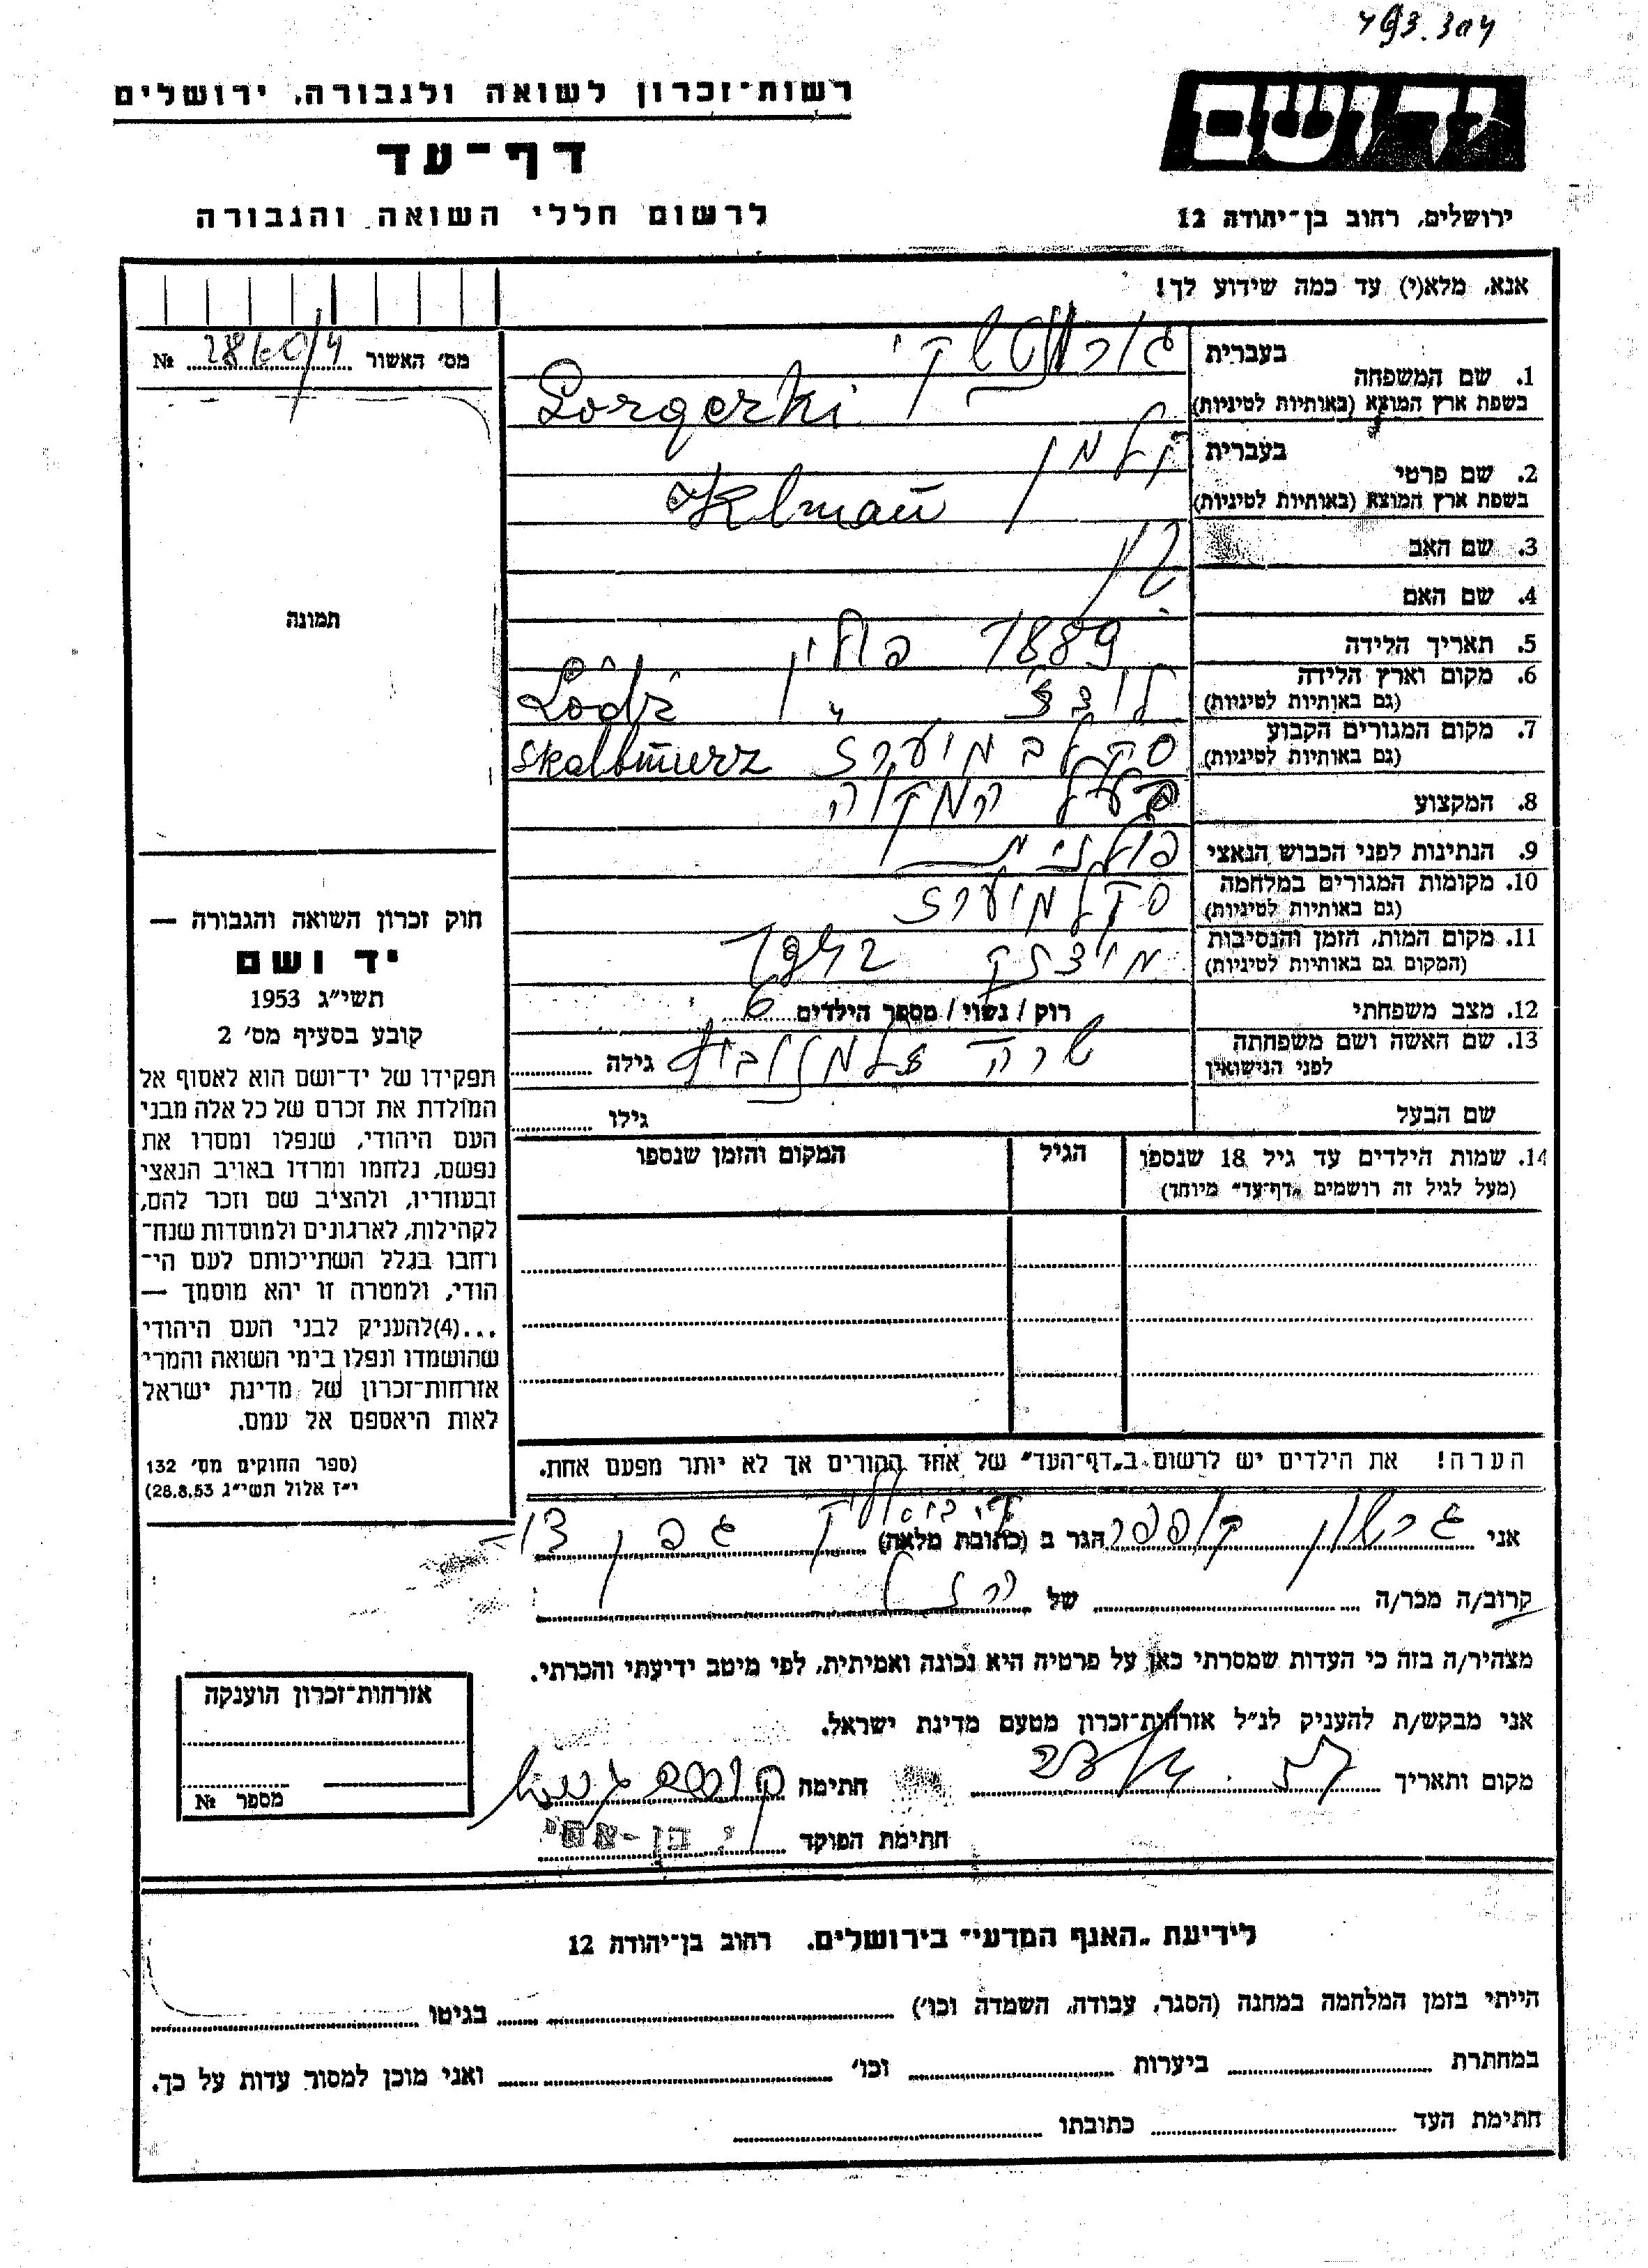 493.304
רשות־זכרון לשואה ולגבורה, ירושלים
דף־עד
לרשום חללי השואה והגבורה
ידושם
ירושלים, רחוב בן־יהודה 12
אנא, מלא(י) עד כמה שידוע לך!
מס׳ האשור № 
1. שם המשפחה בעברית
בשפת ארץ המוצא (באותיות לטיניות)
2. שם פרטי בעברית קלמן
בשפת ארץ המוצא (באותיות לטיניות) Klman
3. שם האב
4. שם האם
5. תאריך הלידה 1889 פולין
6. מקום וארץ הלידה
(גם באותיות לטיניות) לודז׳ " Lódź
7. מקום המגורים הקבוע
(גם באותיות לטיניות) סקלבמיערז Skalbmierz
8. המקצוע בעל המקוה
9. הנתינות לפני הכבוש הנאצי פולנית
10. מקומות המגורים במלחמה
(גם באותיות לטיניות) סקלמיערז
11. מקום המות, הזמן והנסיבות
(המקום גם באותיות לטיניות) 1942
12. מצב משפחתי רוק / נשוי / מספר הילדים 6
13. שם האשה ושם משפחתה
לפני הנישואין שרה גילה
שם הבעל גילו
14. שמות הילדים עד גיל 18 שנספו
(מעל לגיל זה רושמים „דף־עד״ מיוחד)
הגיל
המקום והזמן שנספו
תמונה
חוק זכרון השואה והגבורה —
יד ושם
תשי״ג 1953
קובע בסעיף מס׳ 2
תפקידו של יד־ושם הוא לאסוף אל
המולדת את זכרם של כל אלה מבני
העם היהודי, שנפלו ומסרו את
נפשם, נלחמו ומרדו באויב הנאצי
ובעוזריו, ולהציב שם וזכר להם,
לקהילות, לארגונים ולמוסדות שנח־
רחבו בגלל השתייכותם לעם הי־
הודי, ולמטרה זו יהא מוסמך —
...(4)להעניק לבני העם היהודי
שהושמדו ונפלו בימי השואה והמרי
אזרחות־זכרון של מדינת ישראל
לאות היאספם אל עמם.
(ספר החוקים מס׳ 132
י״ז אלול תשי״ג 28.8.53)
הערה! את הילדים יש לרשום ב„דף־העד״ של אחד ההורים אך לא יותר מפעם אחת.
אני גרשון קופפר הגר ב (כתובת מלאה) גפן
קרוב/ה מכר/ה של
מצהיר/ה בזה כי העדות שמסרתי כאן על פרטיה היא נכונה ואמיתית, לפי מיטב ידיעתי והכרתי.
אני מבקש/ת להעניק לנ״ל אזרחות־זכרון מטעם מדינת ישראל.
מקום ותאריך חתימה
חתימת הפוקד
אזרחות־זכרון הוענקה
מספר №
לידיעת „האגף המדעי״ בירושלים, רחוב בן־יהודה 12
הייתי בזמן המלחמה במחנה (הסגר, עבודה, השמדה וכו׳) בגיטו
במחתרת ביערות וכו׳ ואני מוכן למסור עדות על כך.
חתימת העד כתובתו